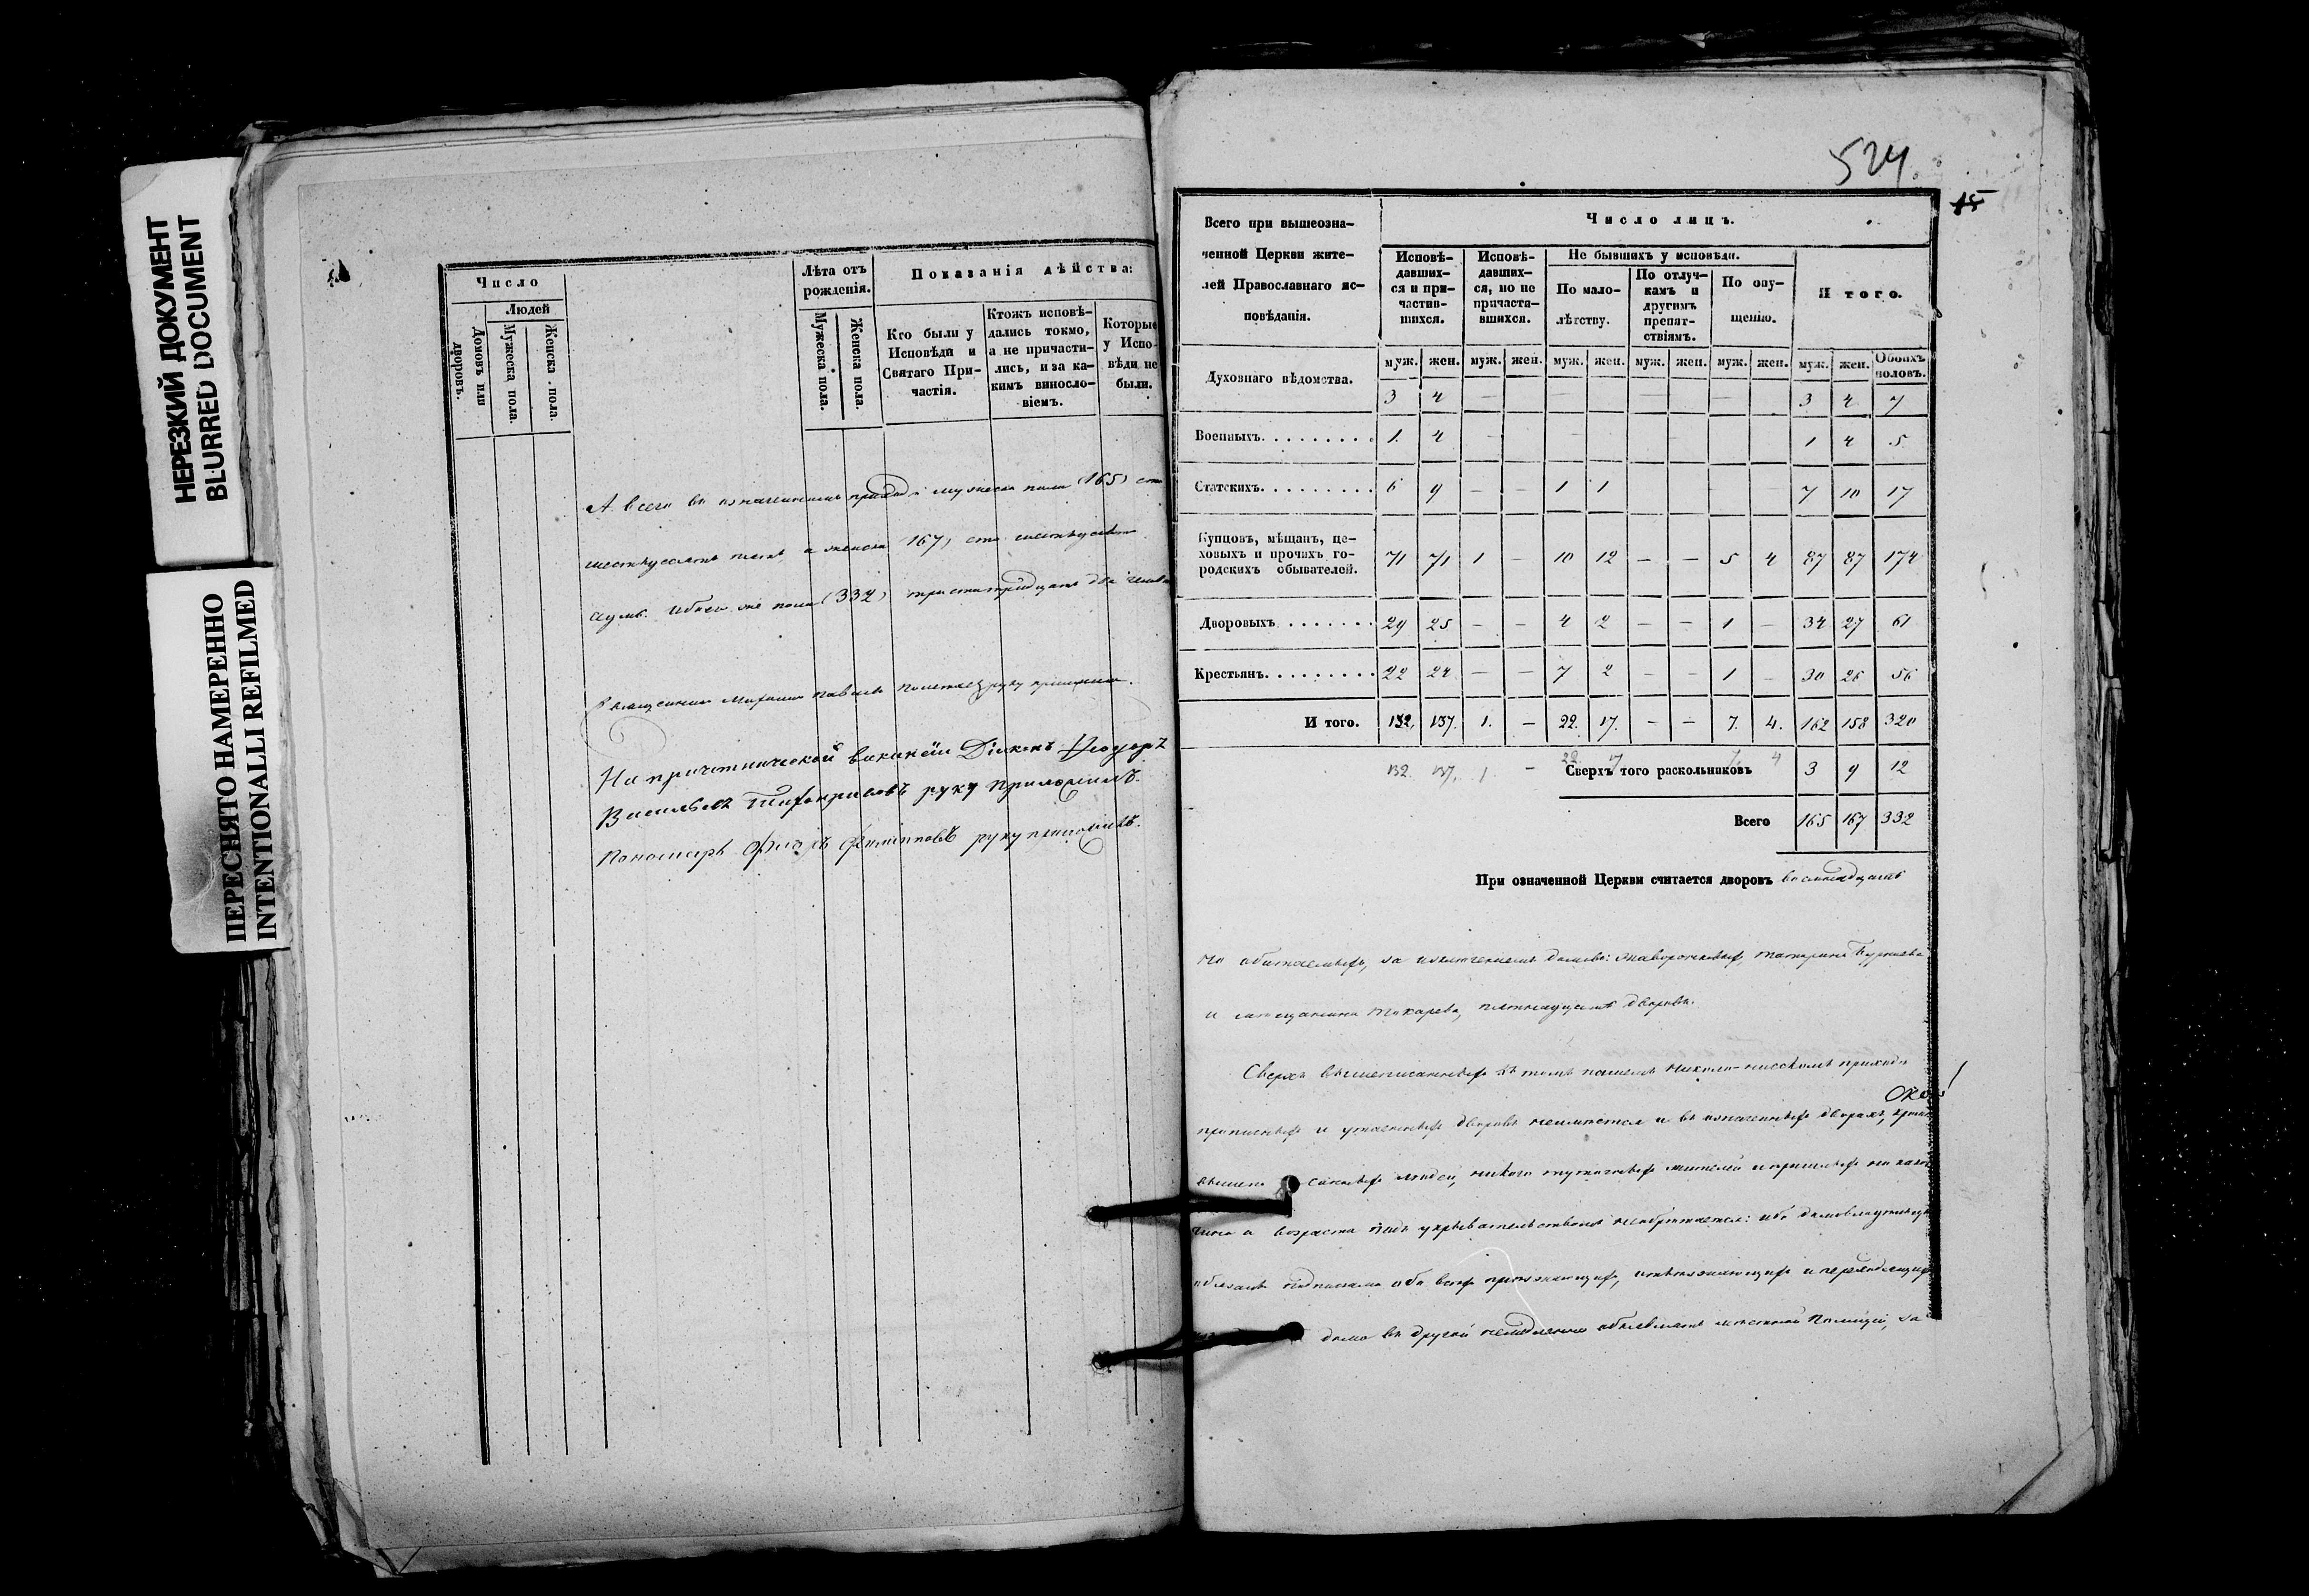 НЕРЕЗКИЙ ДОКУМЕНТ
BLURRED DOCUMENT
ПЕРЕСНЯТО НАМЕРЕННО
INTENTIONALLI REFILMED
Число
Людей
Домовъ или дворовъ.
Мужеска пола.
Женска пола.
Лѣта отъ рожденія.
Мужеска пола.
Женска пола.
Показанія дѣйства:
Кто были у Исповѣди и Святаго Причастія.
Ктожъ исповѣдались токмо, а не причастились, и за какимъ винословіемъ.
Которые у Исповѣди не были.
А всего въ означенномъ приходѣ мужеска пола (165) сто
шестьдесятъ пять а женска (167) сто шестьдесятъ
седмь. Обоего же пола (332) триста тридцать два человѣ
руку приложилъ.
На причетнической вакансіи Діаконъ Ѳеодоръ
Васильевъ руку приложилъ.
Пономарь Филипповъ руку приложилъ.
524.
15
Всего при вышеозначенной Церкви жителей Православнаго исповѣданія.
Число лицъ.
Исповѣдавшихся и причастившихся.
Исповѣдавшихся, но не причастившихся.
Не бывшихъ у исповѣди.
По малолѣтству.
По отлучкамъ и другимъ препятствіямъ.
По опущенію.
И того.
муж. жен. муж. жен. муж. жен. муж. жен. муж. жен. муж. жен. Обоихъ половъ.
Духовнаго вѣдомства. 3 4 — — — — — — 3 4 7
Военныхъ. 1. 4 — — — 1 4 5
Статскихъ. 6 9 — — 1 1 — — 7 10 17
Купцовъ, мѣщанъ, цеховыхъ и прочихъ городскихъ обывателей. 71 71 1 — 10 12 — — 5 4 87 87 174
Дворовыхъ 29 25 — — 4 2 — — 1 — 34 27 61
Крестьянъ. 22 24 — — 7 2 — — 1 — 30 26 56
И того. 132. 137. 1. — 22. 17. — — 7. 4. 162 158 320
132. 137. 1 — 22. 17 7. 4
Сверхъ того раскольниковъ 3 9 12
Всего 165 167 332
При означенной Церкви считается дворовъ восемнадцать
но обитаемыхъ, за исключеніемъ домовъ:
и мѣщанина Токарева, пятнадцать дворовъ.
Сверхъ вышеписанныхъ въ томъ нашемъ приходѣ
прописныхъ и утаенныхъ дворовъ неимѣется и въ означенныхъ дворахъ, кромѣ
людей, никого жителей и пришлыхъ
чина и возраста подъ укрывательствомъ необрѣтается: ибо
обязаны подписками обо всѣхъ
дома въ другой немедленно объявлять мѣстной Полиціи, за